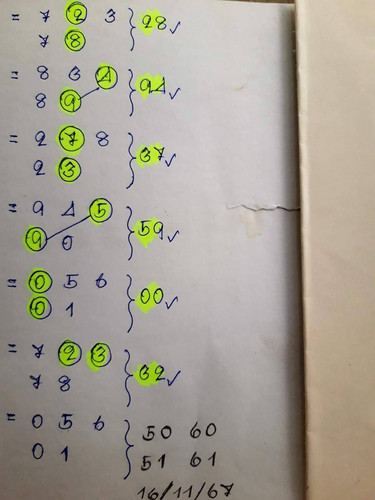 = 7 2 3
7 8 } 28 ✓
= 8 3 4
8 9 } 94 ✓
= 2 7 8
2 3 } 37 ✓
= 9 4 5
9 0 } 59 ✓
= 0 5 6
0 1 } 00 ✓
= 7 2 3
7 8 } 32 ✓
= 0 5 6 } 50 60
0 1 51 61
16/11/67